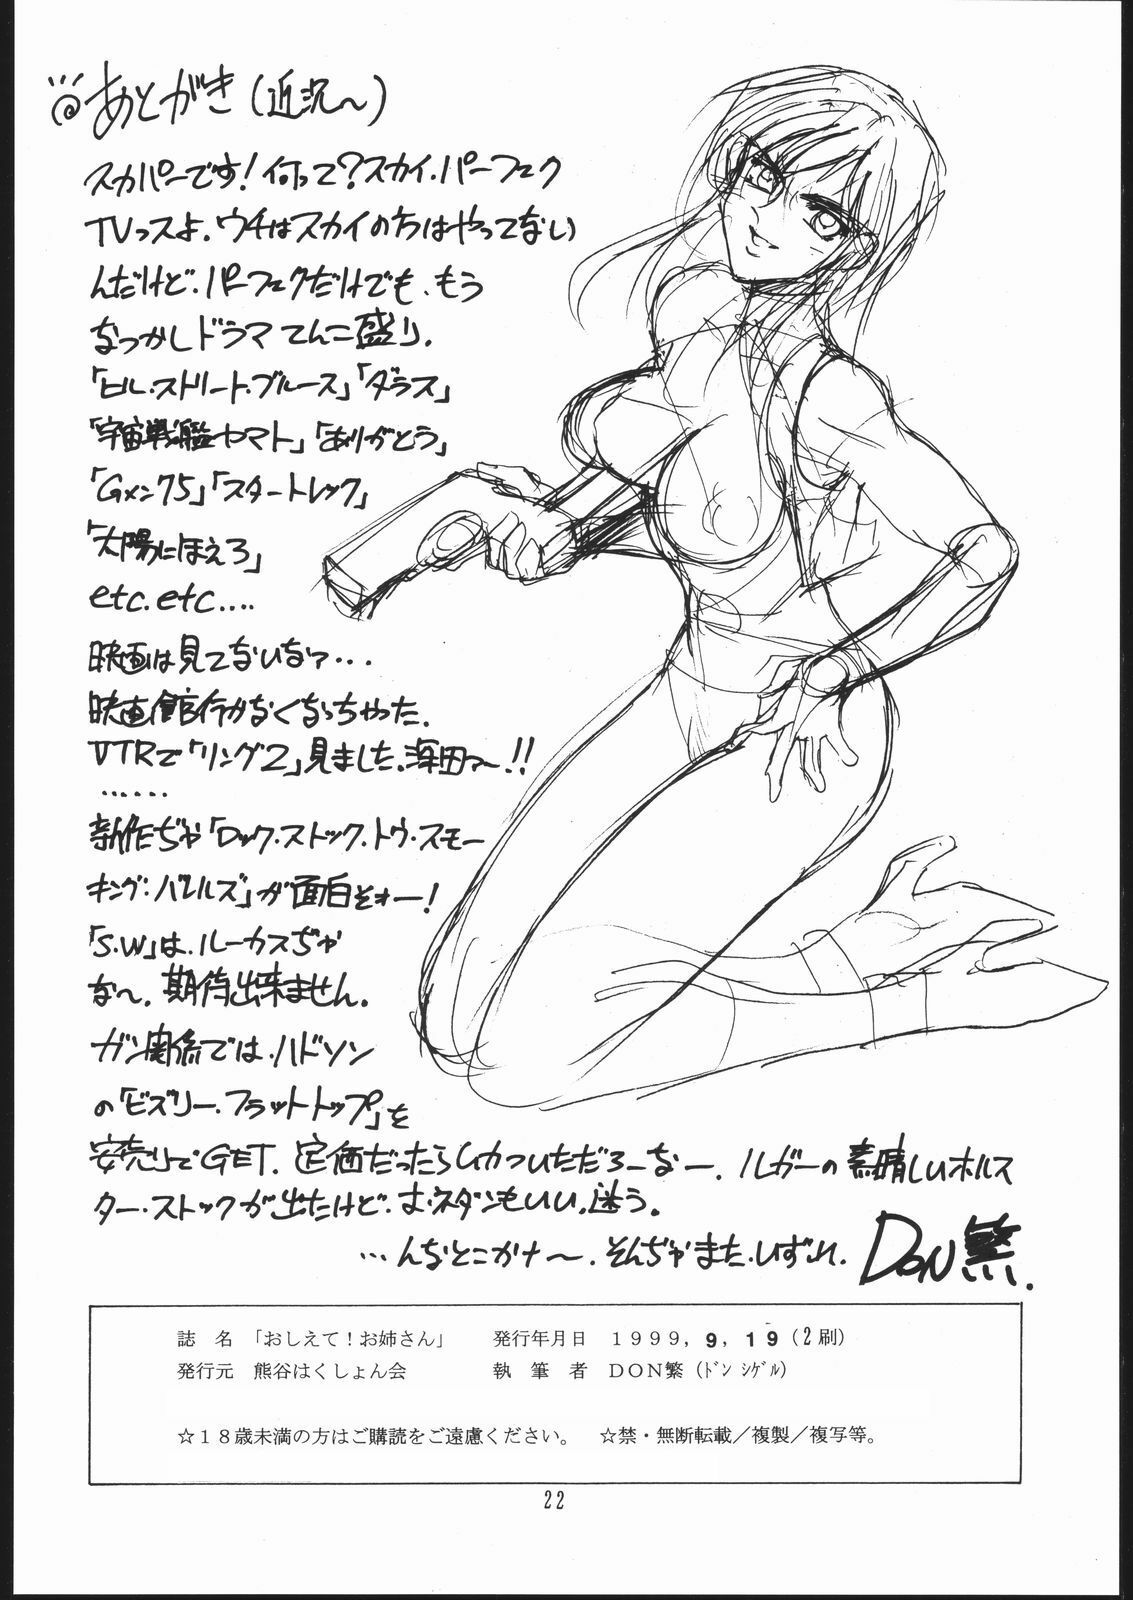 あとがき(近況〜)
スカパーです!何って?スカイ.パーフェク
TVっスよ.ウチはスカイの方はやってない
んだけど.パーフェクだけでも、もう
なつかしドラマ てんこ盛り.
「ヒル・ストリート・ブルース」「ダラス」
「宇宙戦艦ヤマト」「ありがとう」
「Gメン75」「スタートレック」
「太陽にほえろ」
etc.etc....
映画は見てないなァ...
映画館行かなくなっちゃった.
VTRで「リング2」見ました.
......
新作ぢゃ「ロック.ストック.トゥ・スモー
キング:バレルズ」が面白そォー!
「S.W」は.ルーカスぢゃ
な〜.期待出来ません.
ガン関係では.ハドソン
の「ビズリー.フラットトップ」を
安売りでGET.定価だったらムカついただろーなー.ルガーの素晴しいホルス
ター.ストックが出たけど、おネダンもいい.迷う.
...んなとこかナ〜.そんぢゃまた.いずれ.
DON繁.
誌 名 「おしえて!お姉さん」 発行年月日 1999,9,19(2刷)
発行元 熊谷はくしょん会 執 筆 者 DON繁(ﾄﾞﾝ ｼｹﾞﾙ)
☆18歳未満の方はご購読をご遠慮ください。 ☆禁・無断転載／複製／複写等。
22